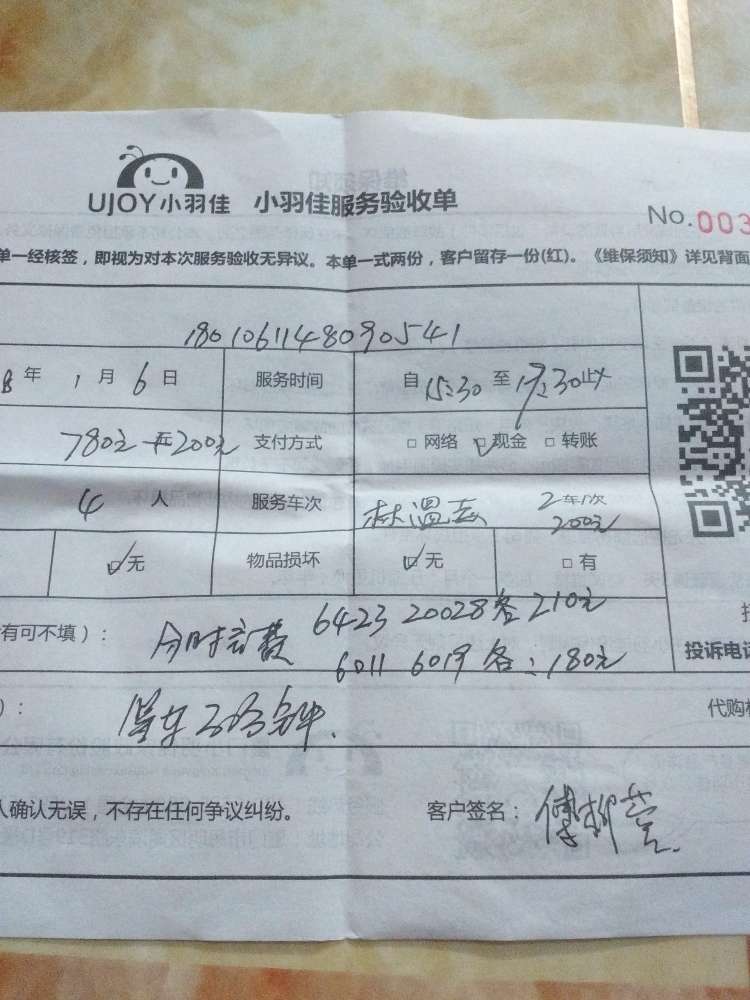 UJOY小羽佳 小羽佳服务验收单
No.003
单一经核签，即视为对本次服务验收无异议。本单一式两份，客户留存一份(红)。《维保须知》详见背面
1801061148090541
8 年 1 月 6 日 服务时间 自 15:30 至 17:30止
780元 车200元 支付方式 □ 网络 ☑ 现金 □ 转账
4 人 服务车次 林温 2车1次
200元
☑ 无 物品损坏 ☑ 无 □ 有
有可不填）： 6423 20028各210元
6011 6019 各：180元
投诉电话
）： 停车 分钟.
代购
人确认无误，不存在任何争议纠纷。 客户签名：傅柳萱